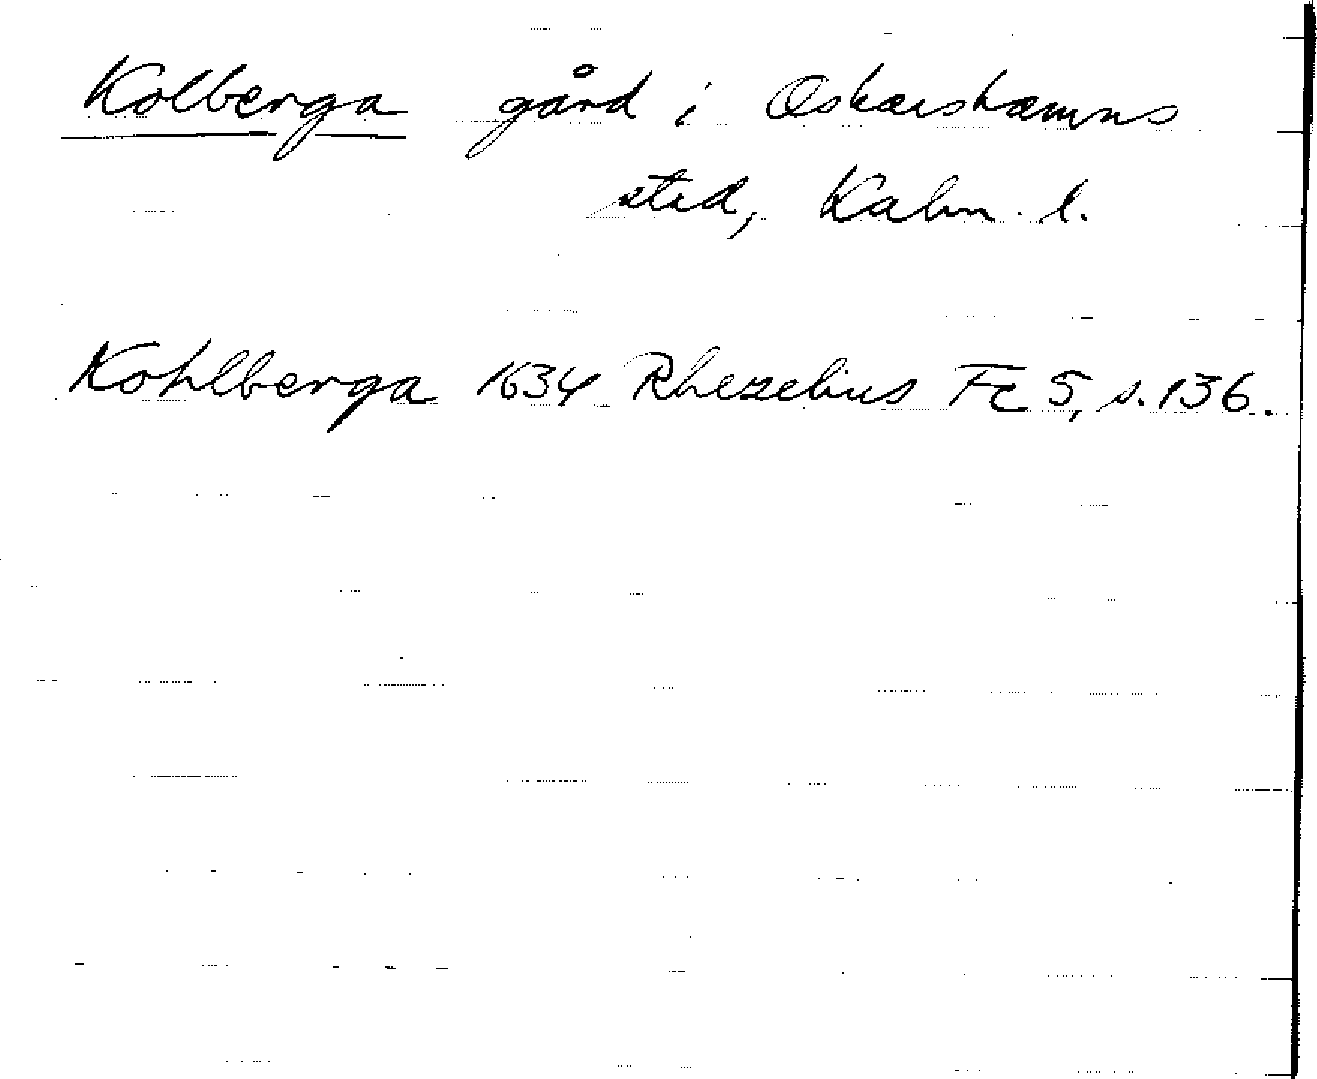 Kolberga gård i Oskarshamns
stad, Kalm. l.
Kohlberga 1634 Rhezelius Fc 5, s. 136.